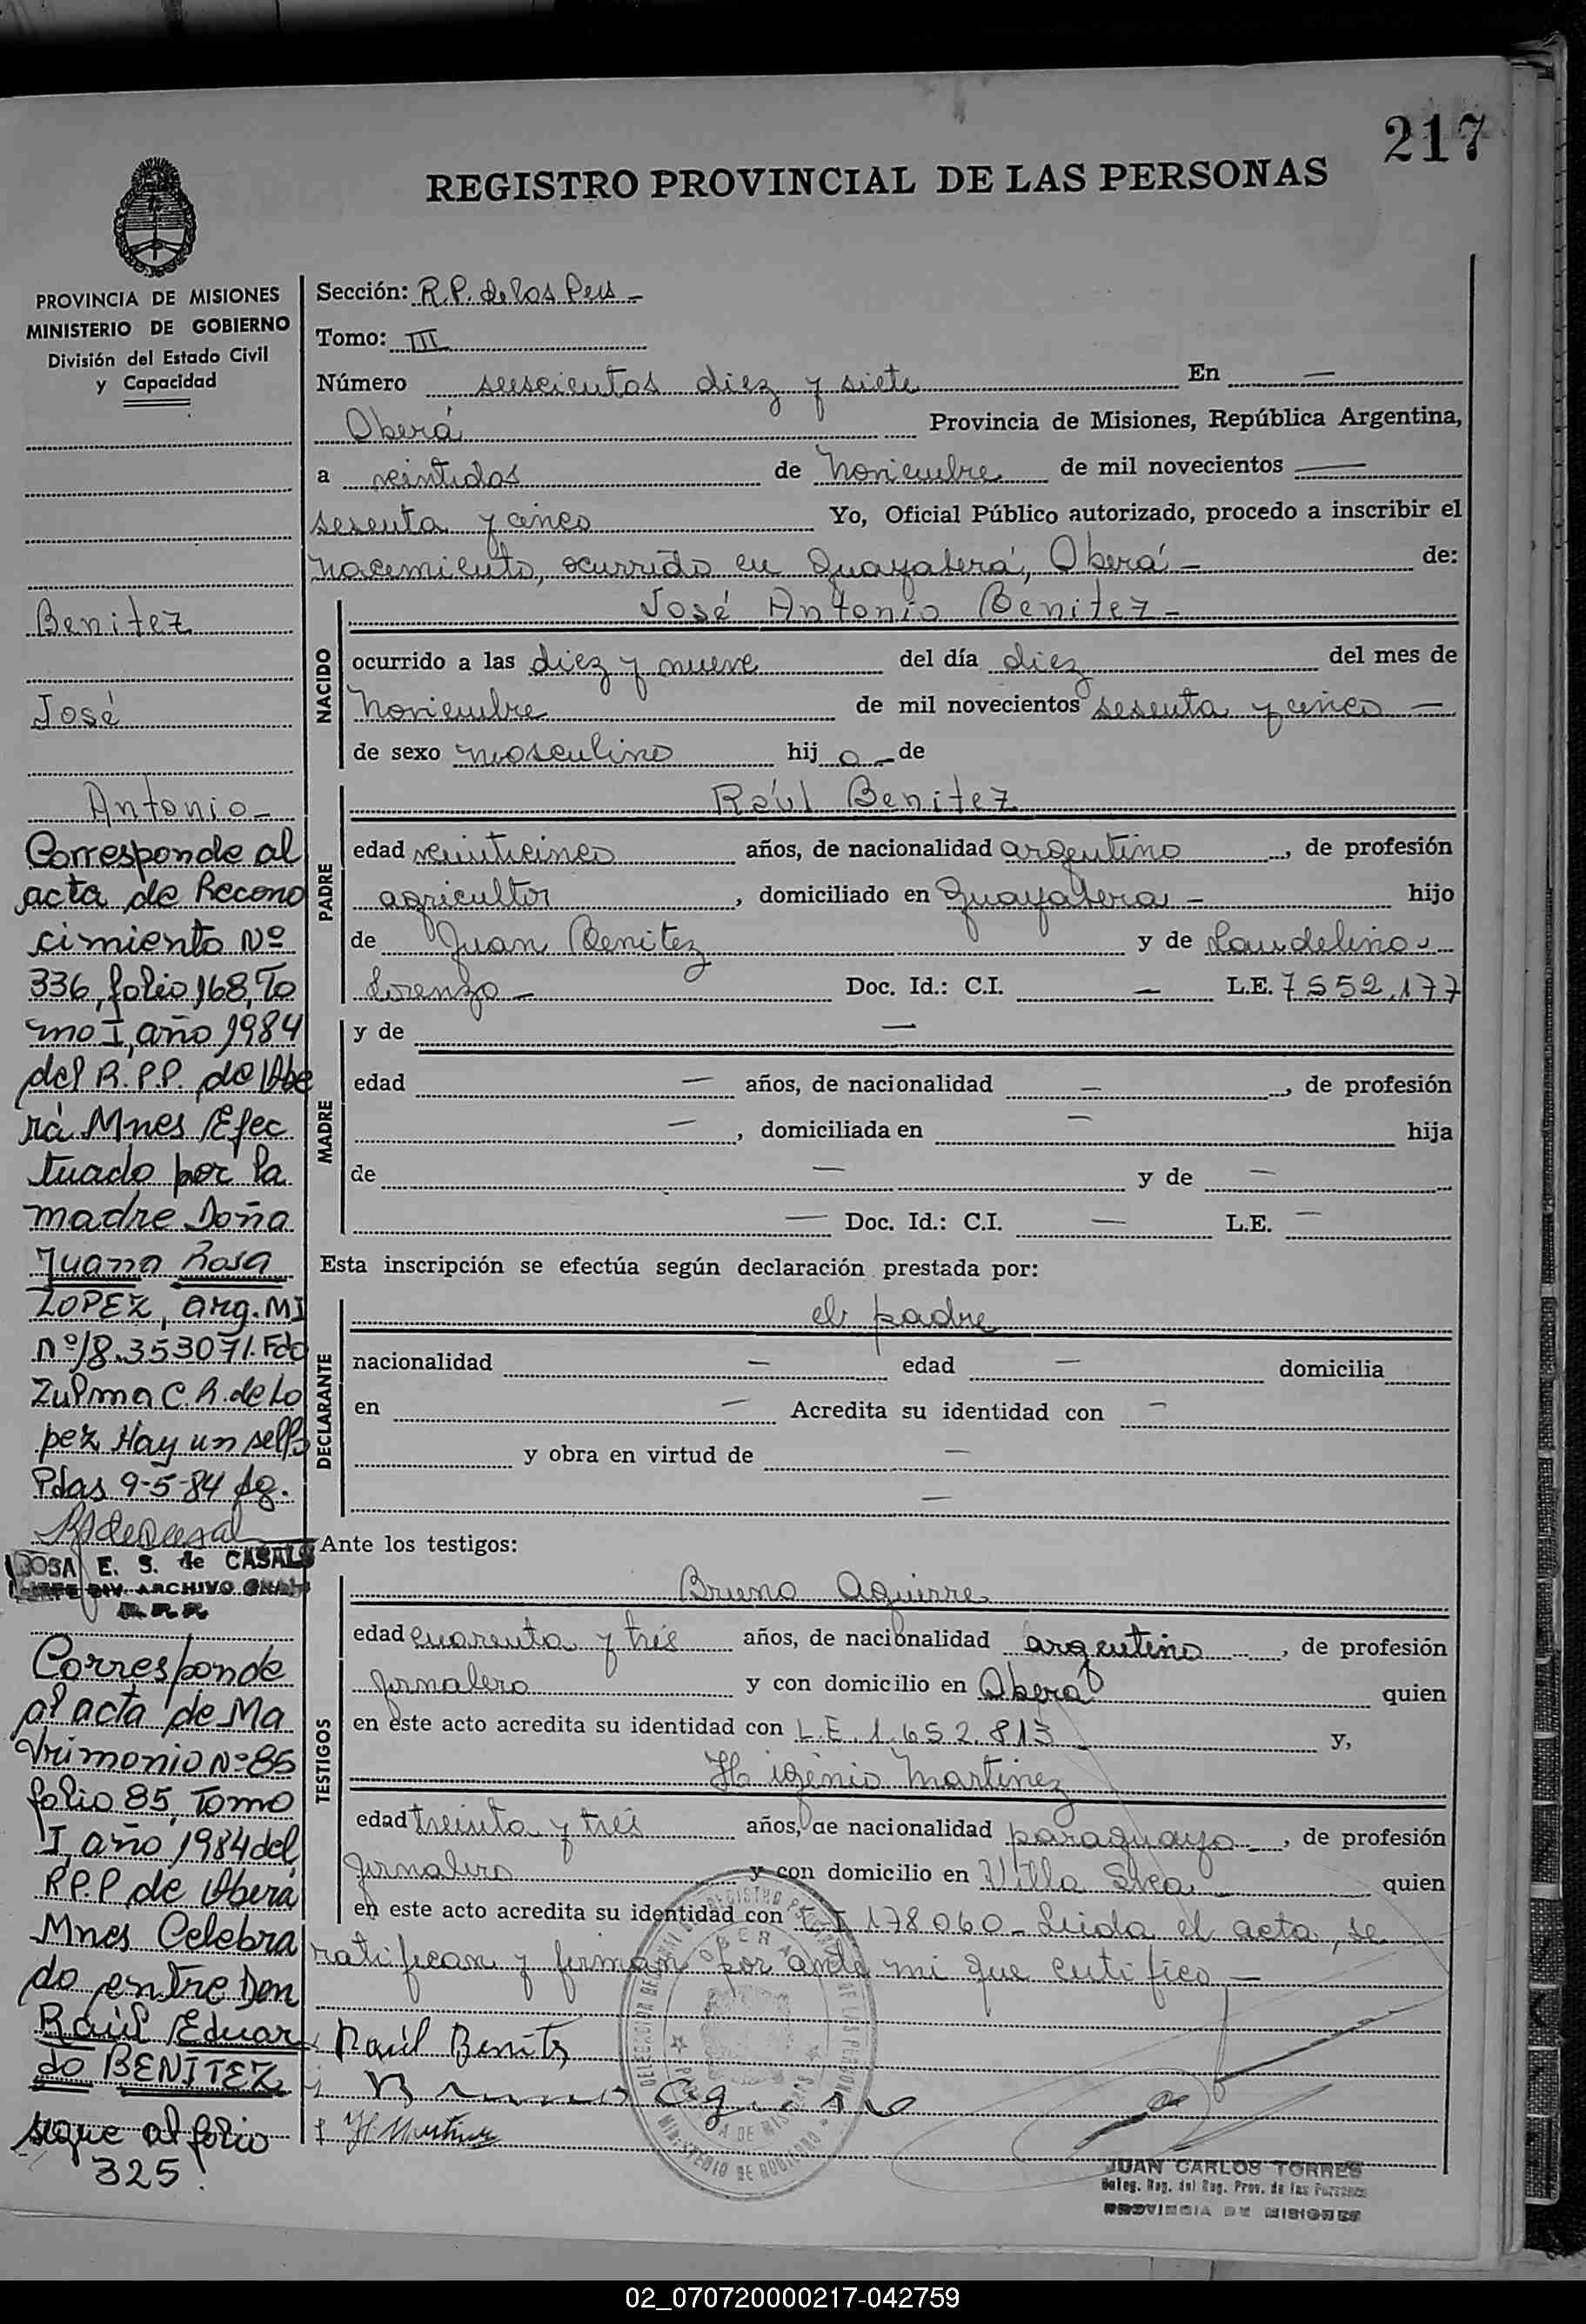 217
REGISTRO PROVINCIAL DE LAS PERSONAS
PROVINCIA DE MISIONES
MINISTERIO DE GOBIERNO
División del Estado Civil
y Capacidad
Benitez
José
Antonio
Corresponde al
acta de Recono
cimiento Nº
336, folio 168, To
mo I, año 1984
del R.P.P. de Obe
rá Mnes Efec
tuado por la
madre Doña
Juana Rosa
LOPEZ, arg. MI
Nº 18.353071. Fdo
Zulma C.R. de Lo
pez Hay un sello
Pdas 9-5-84 Ag.
ROSA E. S. de CASALS
JEFE DIV. ARCHIVO GRAL
R.P.P.
Corresponde
al acta de Ma
trimonio Nº 85
folio 85, Tomo
I, año 1984 del
R.P.P de Oberá
Mnes Celebra
do entre Don
Raúl Eduar
do BENITEZ
sigue al folio
325
Sección: R.P. de las Pers -
Tomo: III
Número seiscientos diez y siete En —
Oberá Provincia de Misiones, República Argentina,
a veintidos de Noviembre de mil novecientos —
sesenta y cinco Yo, Oficial Público autorizado, procedo a inscribir el
nacimiento, ocurrido en Guayabera, Oberá - de:
NACIDO
José Antonio Benitez -
ocurrido a las diez y nueve del día diez del mes de
Noviembre de mil novecientos sesenta y cinco —
de sexo masculino hij o - de
PADRE
Raúl Benitez
edad veinticinco años, de nacionalidad argentino, de profesión
agricultor, domiciliado en Guayabera - hijo
de Juan Benitez y de Laudelina
Lorenzo - Doc. Id.: C.I. — L.E. 7552.177
MADRE
y de —
edad — años, de nacionalidad —, de profesión
—, domiciliada en — hija
de — y de —
— Doc. Id.: C.I. — L.E. —
Esta inscripción se efectúa según declaración prestada por:
DECLARANTE
el padre
nacionalidad — edad — domicilia
en — Acredita su identidad con —
y obra en virtud de —
—
Ante los testigos:
TESTIGOS
Bruno Aguirre
edad cuarenta y tres años, de nacionalidad argentino, de profesión
jornalero y con domicilio en Oberá quien
en este acto acredita su identidad con L.E. 1.652.813 y,
Higenio Martinez
edad treinta y tres años, de nacionalidad paraguayo -, de profesión
jornalero y con domicilio en Villa Svea quien
en este acto acredita su identidad con 178060 - Leida el acta, se
ratifican y firman por ante mi que certifico —
Raúl Benitz
Bruno Aguirre
H Martinez
JUAN CARLOS TORRES
Deleg. Reg. del Reg. Prov. de las Personas
PROVINCIA DE MISIONES
02_070720000217-042759